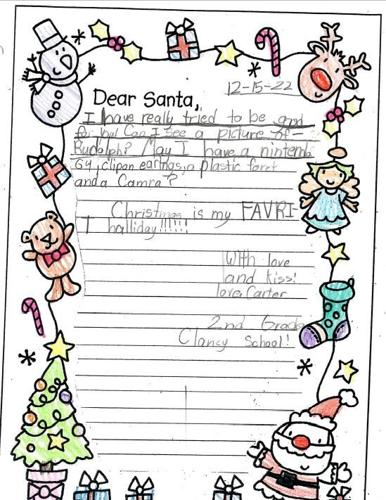 12-15-22
Dear Santa,
I have really tried to be good
Can I see a picture of
Rudolph? May I have a nintendo
64, clipon earings, a plastic foret
and a Camra?
Christmas is my FAVRIT
halliday!!!!!
With love
and kiss!
love, Carter
2nd Grade
Clancy School!